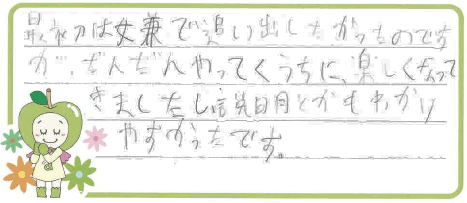 最初は嫌で追い出したかったのです
が、だんだんやってくうちに、楽しくなって
きましたし説明とかもわかり
やすかったです。